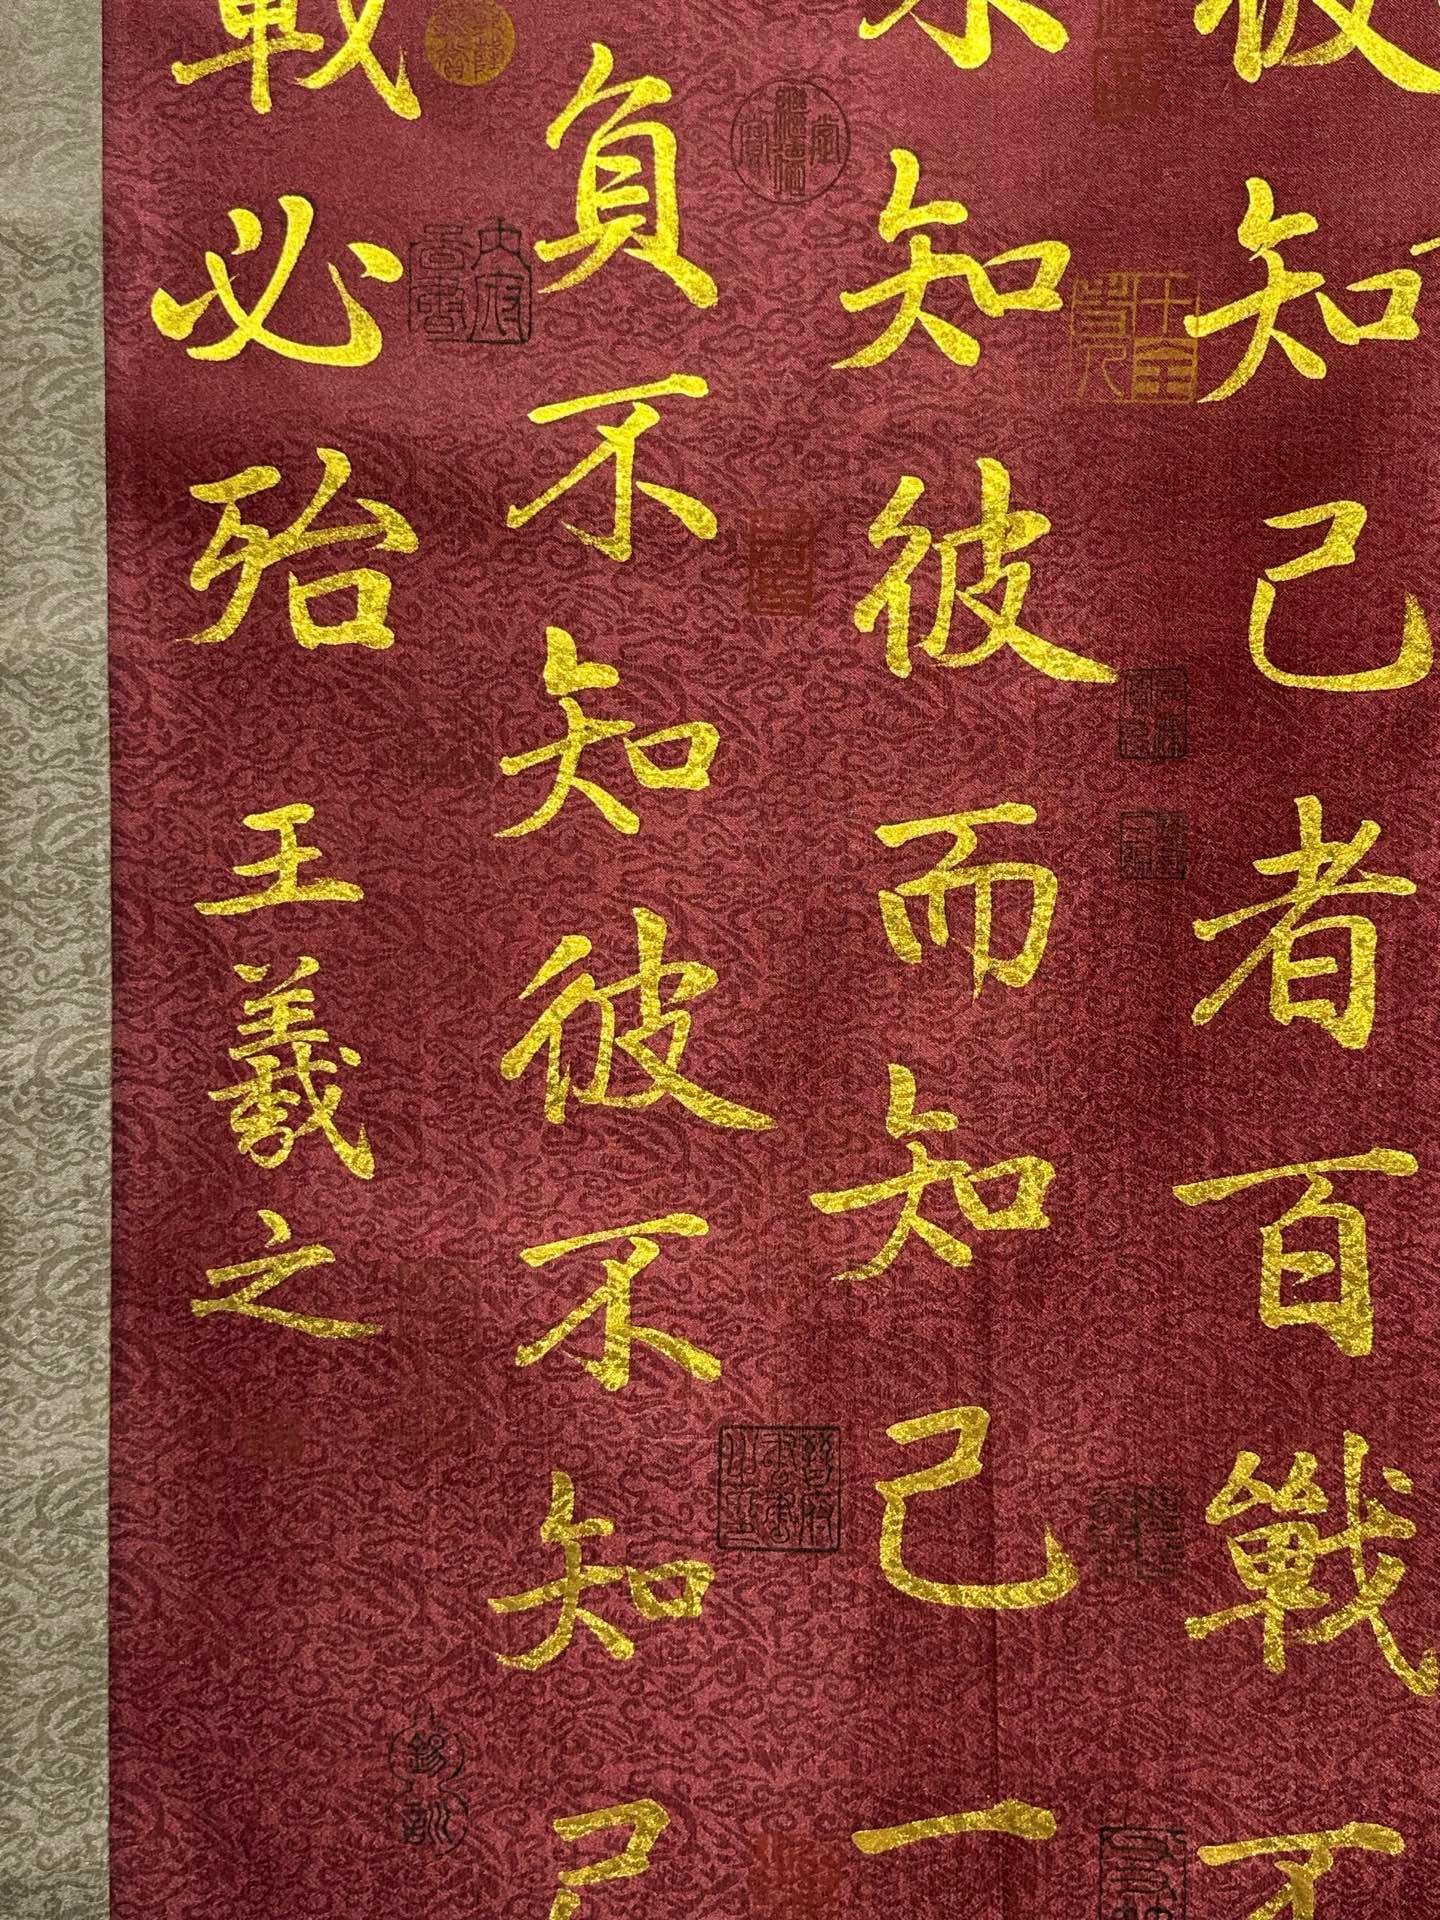 彼知己者百戰不
不知彼而知己一
負不知彼不知己
戰必殆
王羲之